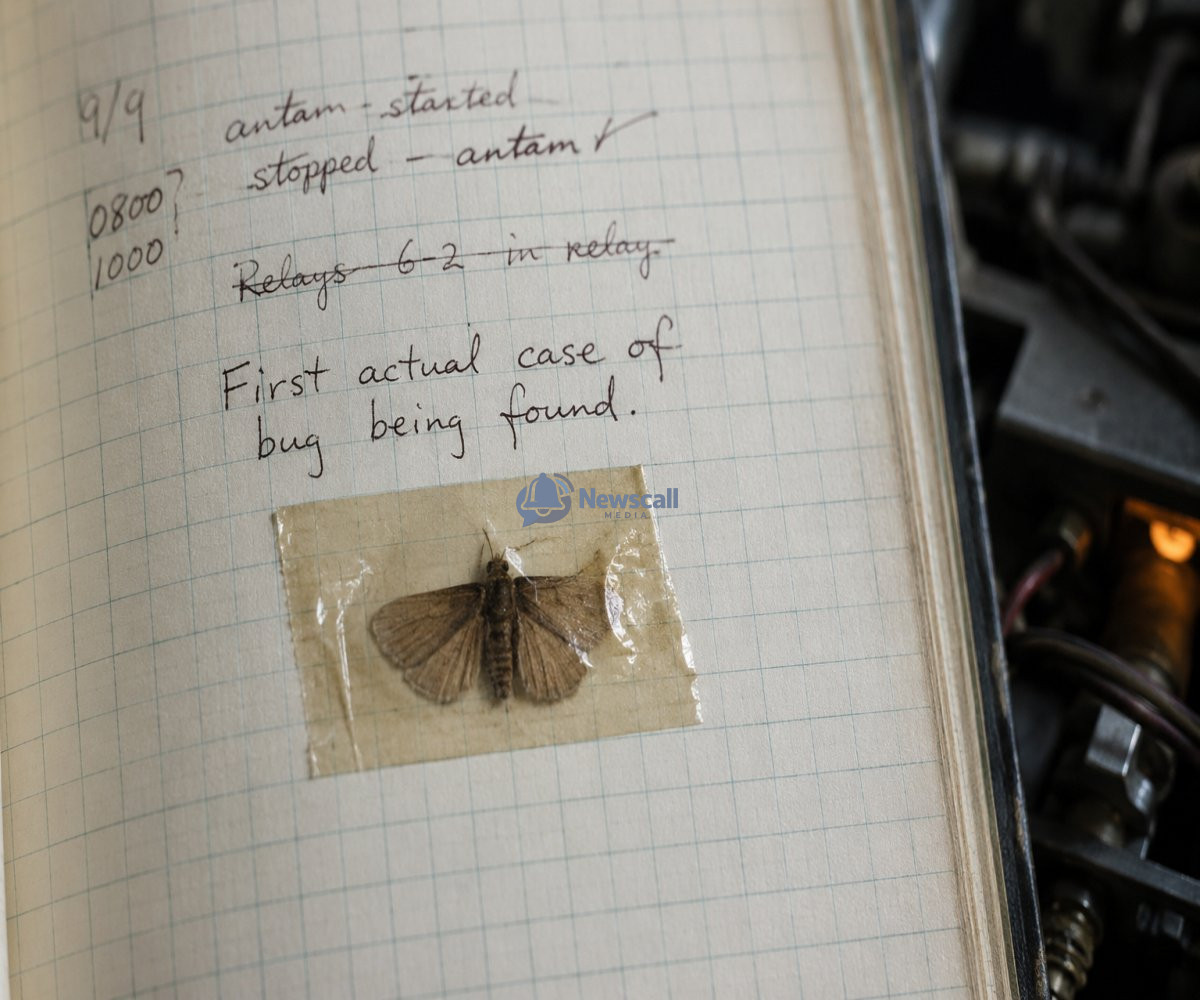 9/9
antam - started
stopped - antam ✓
0800?
1000
Relays 6-2 in relay
First actual case of
bug being found.
Newscall
MEDIA